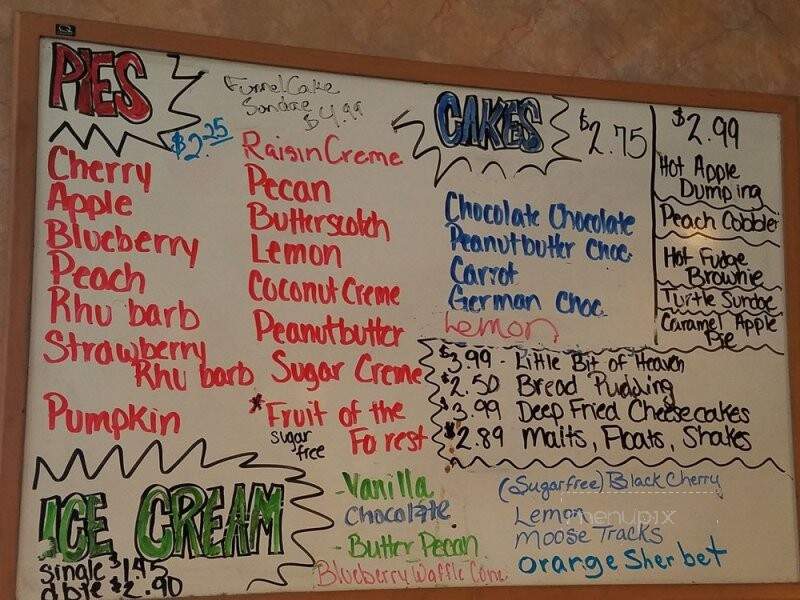 PIES
FunnelCake
Sundae
$4.99
$2.25
Cherry
Apple
Blueberry
Peach
Rhu barb
Strawberry
Rhu barb
Pumpkin
Raisin Creme
Pecan
Butterscotch
Lemon
Coconut Creme
Peanutbutter
Sugar Creme
*Fruit of the
Forest
sugar
free
CAKES
$2.75
Chocolate Chocolate
Peanutbutter Choc.
Carrot
German Choc
Lemon
$2.99
Hot Apple
Dumping
Peach Cobbler
Hot Fudge
Brownie
Turtle Sundae
Caramel Apple
Pie
$3.99 - Little Bit of Heaven
$2.50 Bread Pudding
$3.99 Deep Fried Cheesecakes
$2.89 Malts, Floats, Shakes
ICE CREAM
single $1.45
dble $2.90
-Vanilla
Chocolate
- Butter Pecan
Blueberry Waffle Cone
(Sugarfree) Black Cherry
Lemon
Moose Tracks
orange Sherbet
menupix